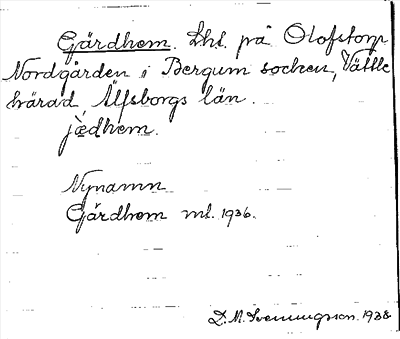 Gärdhem. Lht. på Olofstorp
Nordgården i Bergum socken, Vättle
härad, Älfsborgs län.
jædhem.
Nynamn
Gärdhem ml. 1936.
D. M. Svenningsson. 1938